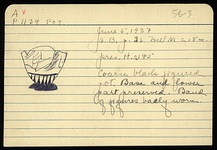 A V
P 1129 Pot
56-3
June 5, 1937
Pres. H.
Coarse black figured
pot. Base and lower
part preserved. Band
of figures badly worn.